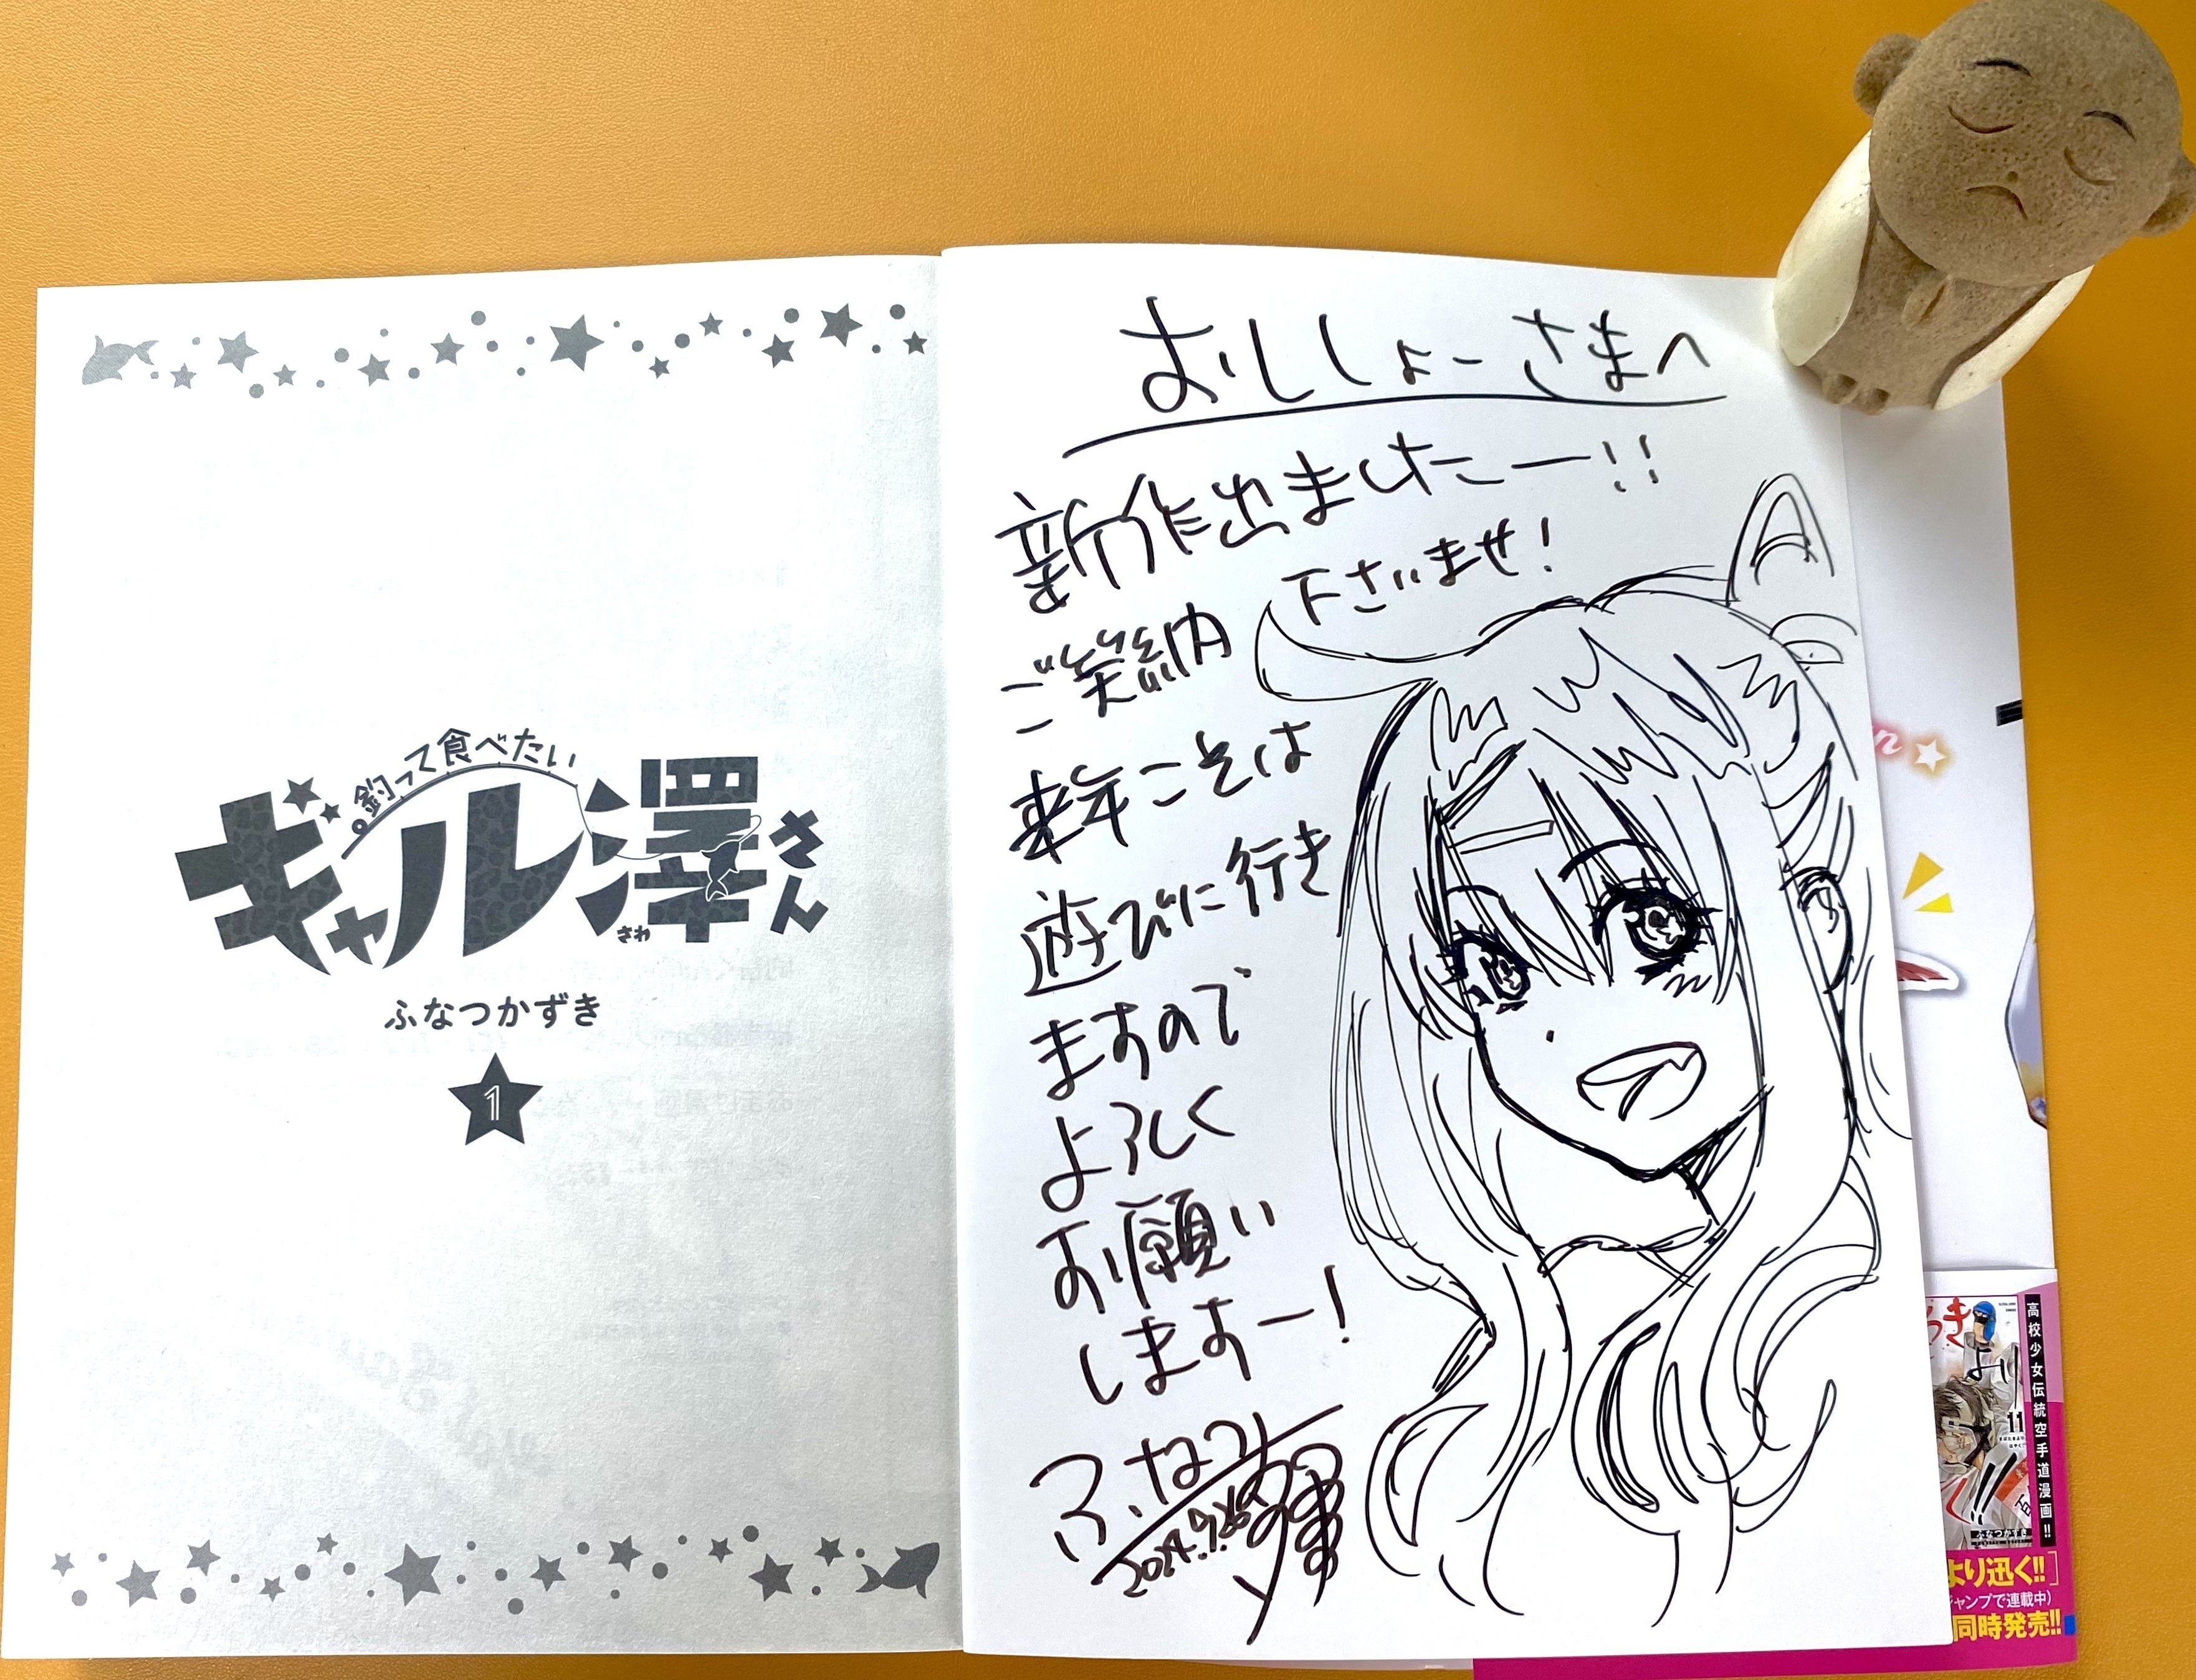 釣って食べたい
ギャル澤さん
さわ
ふなつかずき
1
おししょーさまへ
新作出ましたー!!
ご笑納
下さいませ!
来年こそは
遊びに行き
ますので
よろしく
お願い
しますー!
ふなつ
高校少女伝統空手道漫画!!
11
ふなつかずき
より迅く!!
ャンプで連載中)
同時発売!!